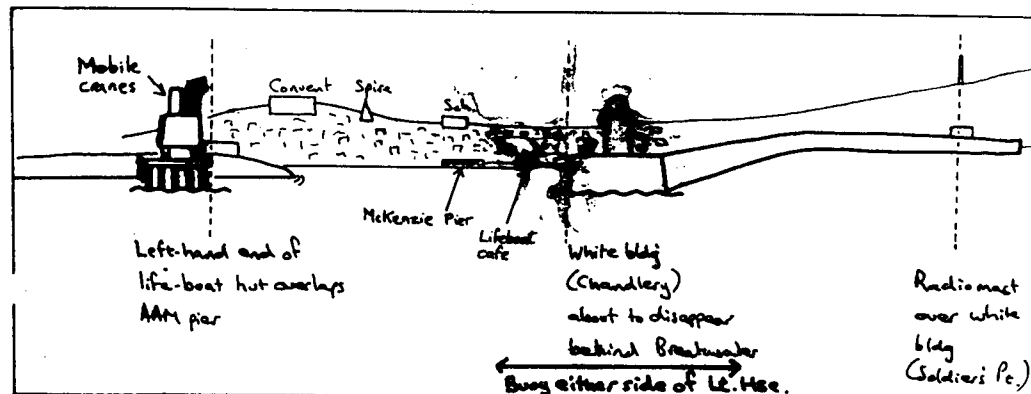 Mobile
cranes
Convent
Spire
Sch.
McKenzie Pier
Lifeboat
cafe
Left-hand end of
life-boat hut overlaps
AAM pier
White bldg
(Chandlery)
about to disappear
behind Breakwater
Buoy either side of Lt. Hse.
Radio mast
over white
bldg
(Soldier's Pt.)